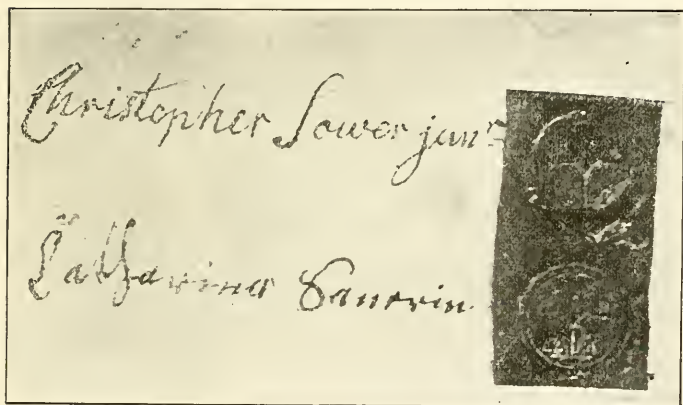 Christopher Sower junr
Catharina Saurrin